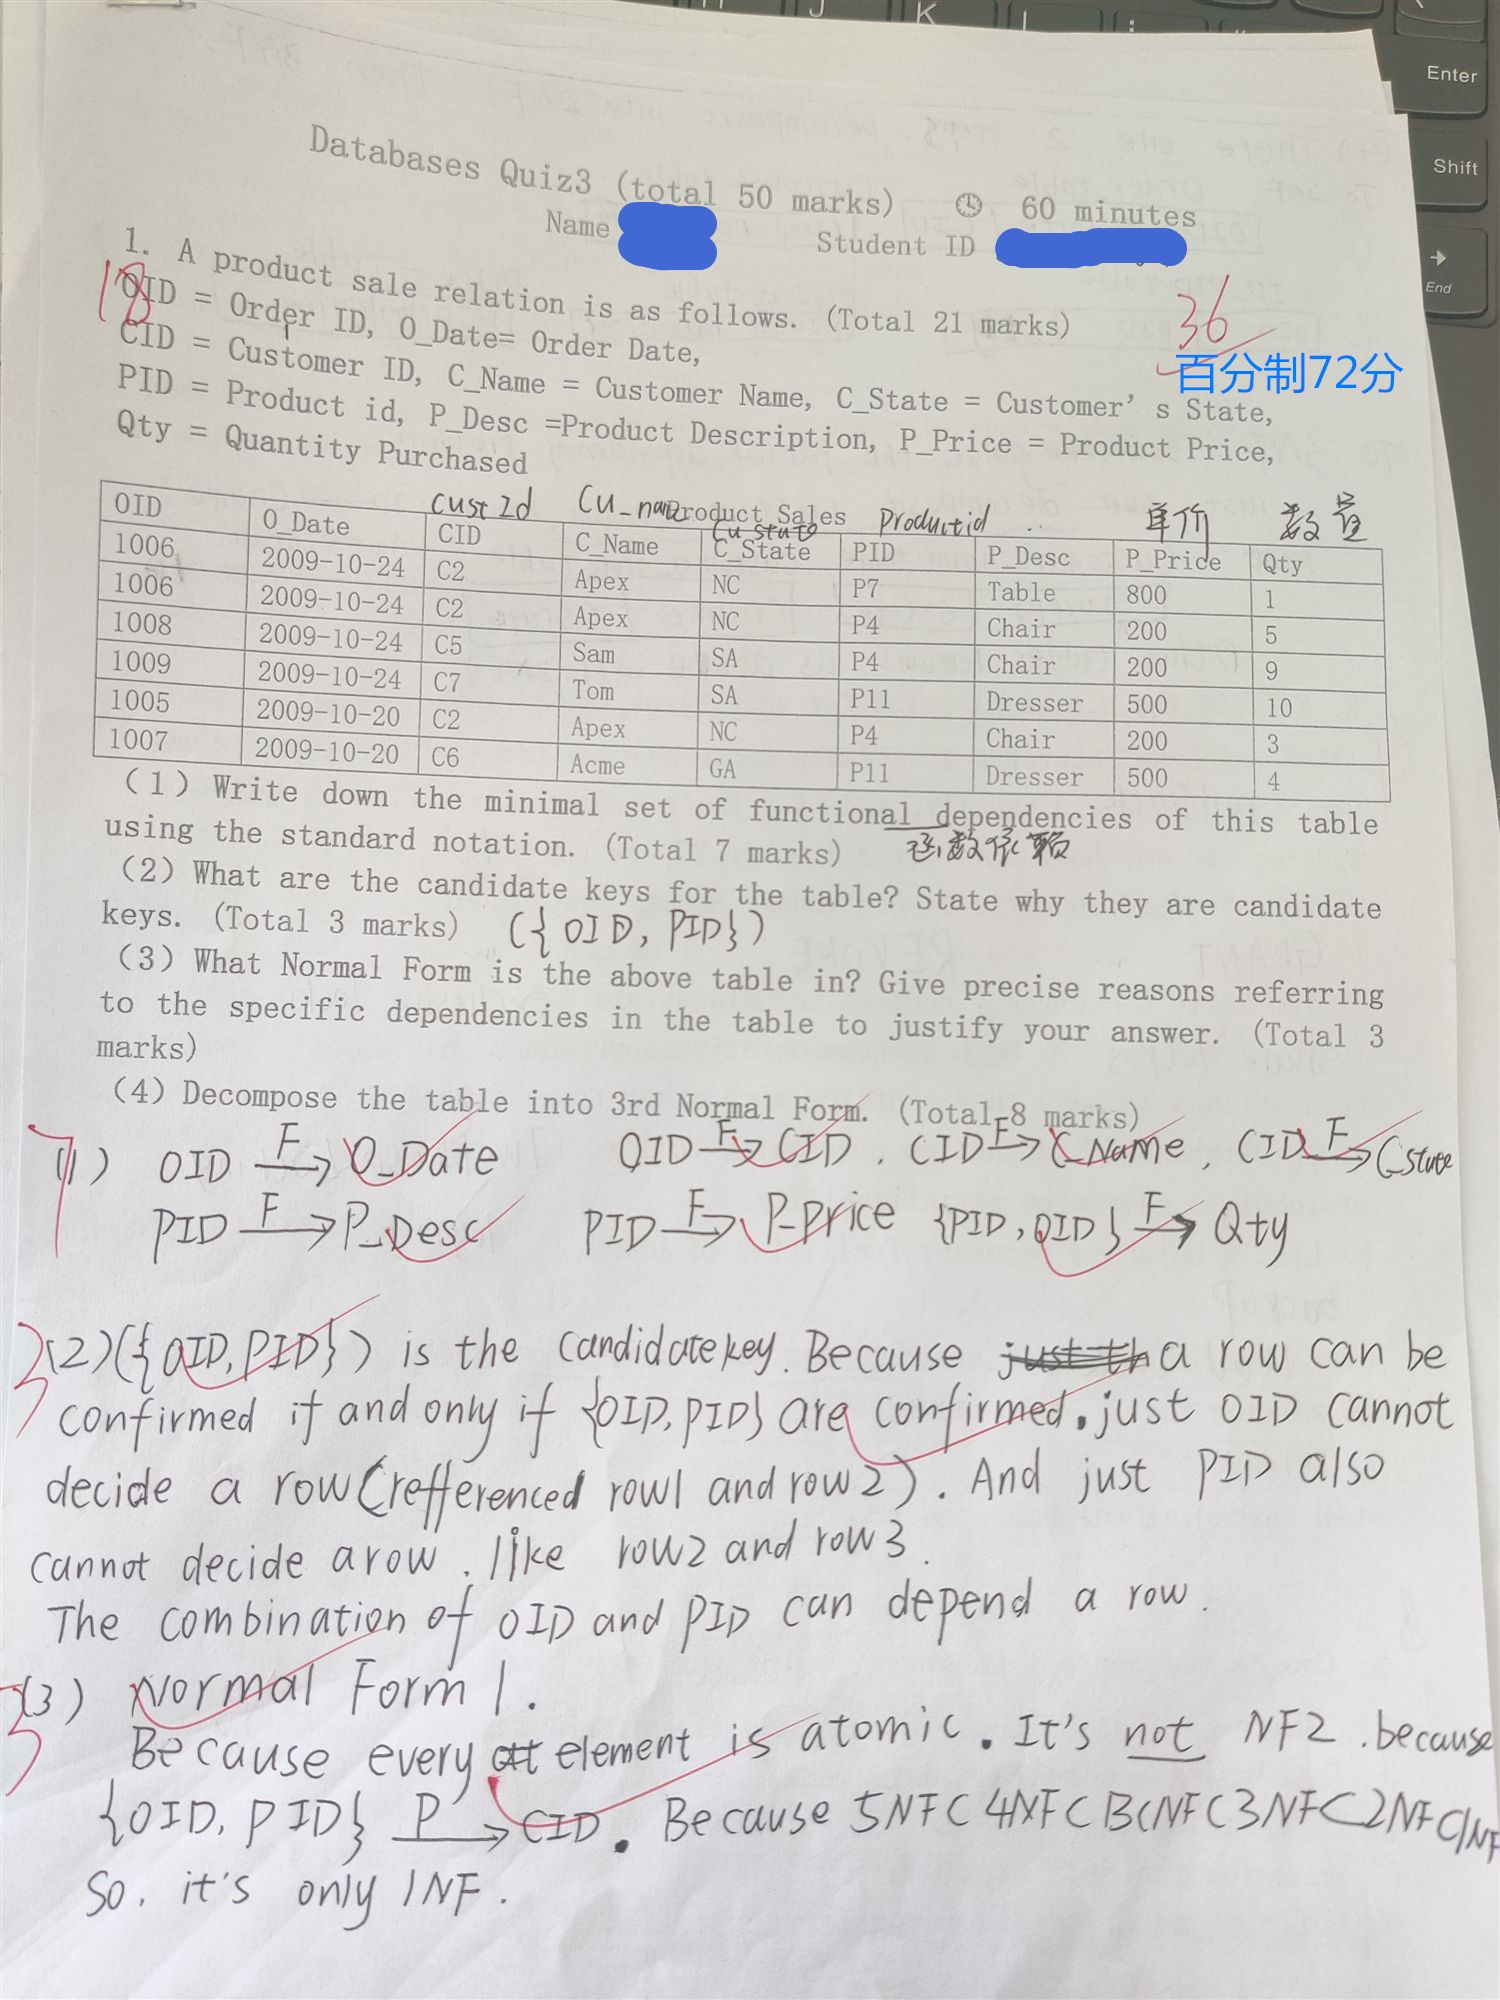 Enter
Shift
End
K
J
L
Databases Quiz3 (total 50 marks) 60 minutes
Name Student ID
1. A product sale relation is as follows. (Total 21 marks)
18
36
百分制72分
OID = Order ID, O_Date= Order Date,
CID = Customer ID, C_Name = Customer Name, C_State = Customer’s State,
PID = Product id, P_Desc =Product Description, P_Price = Product Price,
Qty = Quantity Purchased
Product Sales
Cust Id Cu_name Cu_state Productid .. 单价 数量
OID O_Date CID C_Name C_State PID P_Desc P_Price Qty
1006 2009-10-24 C2 Apex NC P7 Table 800 1
1006 2009-10-24 C2 Apex NC P4 Chair 200 5
1008 2009-10-24 C5 Sam SA P4 Chair 200 9
1009 2009-10-24 C7 Tom SA P11 Dresser 500 10
1005 2009-10-20 C2 Apex NC P4 Chair 200 3
1007 2009-10-20 C6 Acme GA P11 Dresser 500 4
(1) Write down the minimal set of functional dependencies of this table
using the standard notation. (Total 7 marks) 函数依赖
(2) What are the candidate keys for the table? State why they are candidate
keys. (Total 3 marks) ({OID, PID})
(3) What Normal Form is the above table in? Give precise reasons referring
to the specific dependencies in the table to justify your answer. (Total 3
marks)
(4) Decompose the table into 3rd Normal Form. (Total 8 marks)
7
(1) OID F→ O_Date OID F→ CID . CID F→ C_Name , CID F→ C_state
PID F→ P_Desc PID F→ P_Price {PID, OID} F→ Qty
3
(2) ({OID, PID}) is the candidate key. Because a row can be
confirmed if and only if {OID, PID} are confirmed. just OID cannot
decide a row (refferenced row1 and row2). And just PID also
cannot decide a row. like row2 and row3.
The combination of OID and PID can depend a row.
3
(3) Normal Form 1.
Because every element is atomic. It's not NF2. because
{OID, PID} P→ CID. Because 5NF⊂4NF⊂BCNF⊂3NF⊂2NF⊂1NF
So, it's only 1NF.